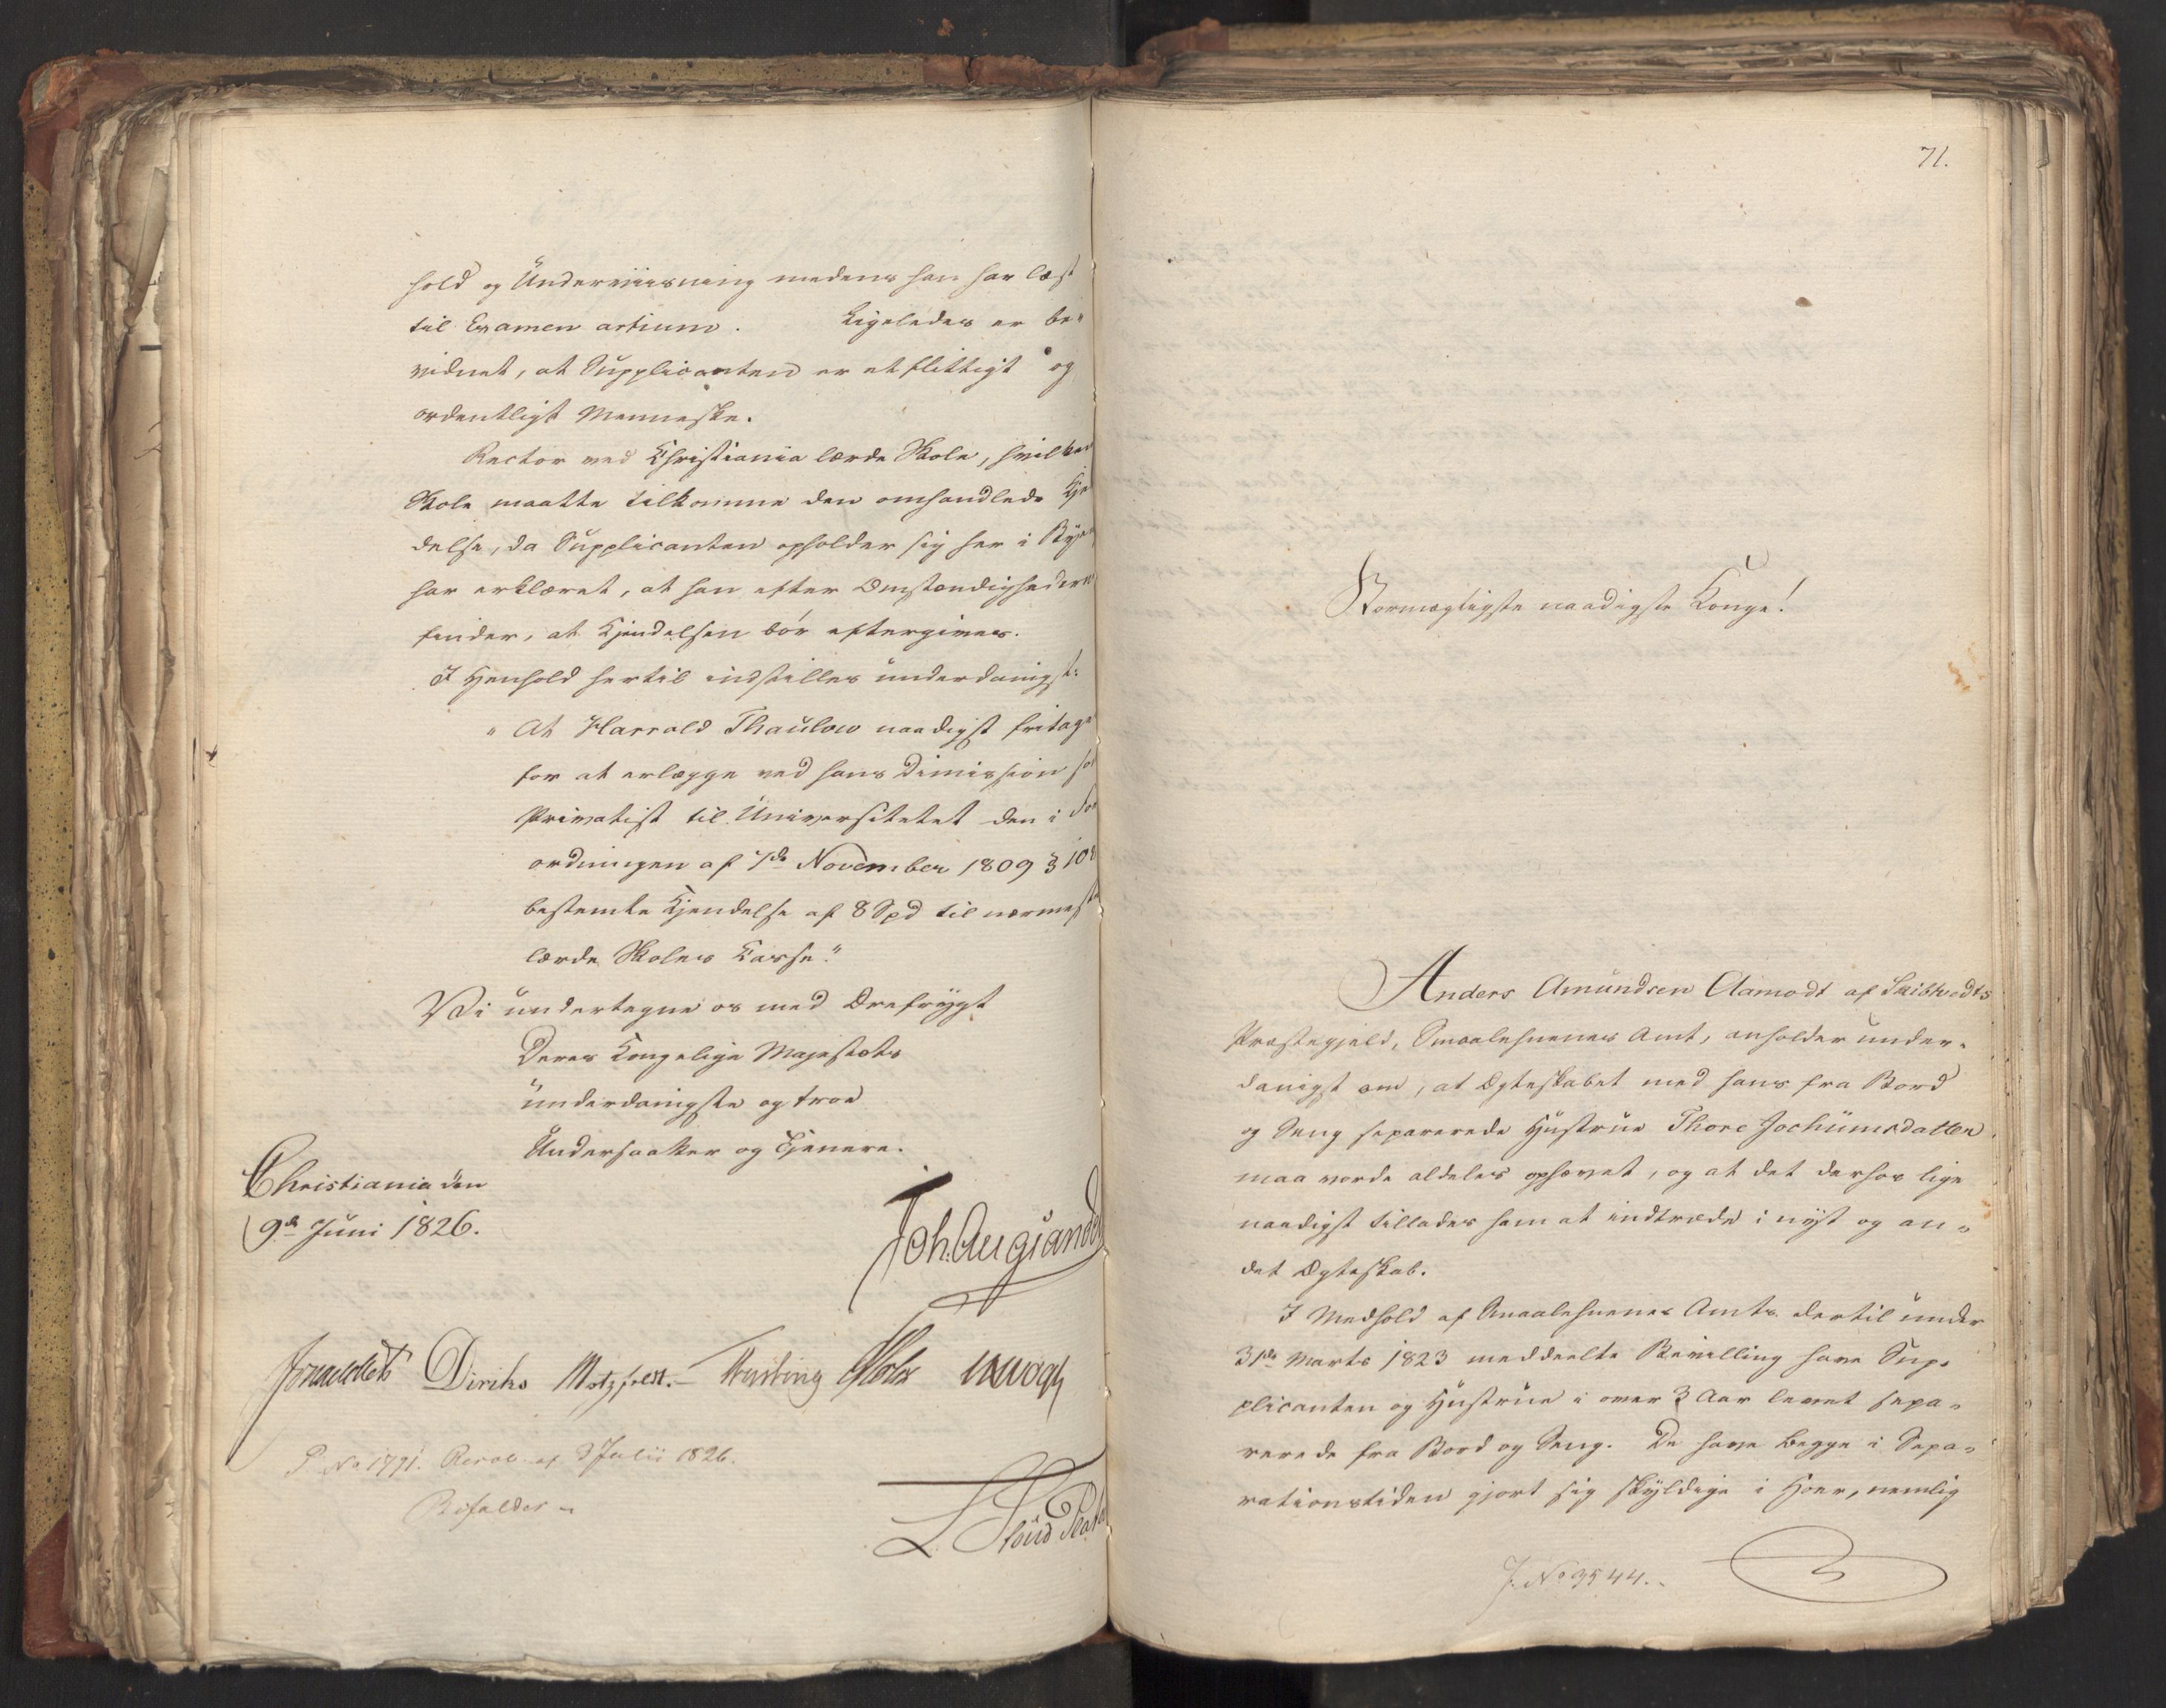 hold og Underviisning medens han har læst
til Examen artium. Ligeledes er be„
vidnet, at Supplicanten er et flittigt og
ordentligt Menneske.
Rector ved Christiania lærde Skole, hvilken
Skole maatte tilkomme den omhandlede Kjen
delse, da Supplicanten opholder sig her i Byen
har erklæret, at han efter Omstændighederne
finder, at Kjendelsen bör eftergives.
I Henhold hertil indstilles underdanigst:
"At Harrald Thaulow naadigst fritages
for at erlægge ved hans Dimission som
Privatist til Universitetet den i For
ordningen af 7de November 1809 § 108
bestemte Kjendelse af 8 Spd til nærmeste
lærde Skoles Casse."
Vi undertegne os med Ærefrygt
Deres Kongelige Majestæts
underdanigste og troe
Undersaatter og Tjenere.
Christiania den
9de Juni 1826.
Joh. Aug Sandels
Jonas Collett Diriks Motzfeldt. Treschow Holst Vogt
P. No 1791. Resol. af 3 Julii 1826.
Bifaldes
L Stoud Platou
71.
Stormægtigste naadigste Konge!
Anders Amundsen Aamodt af Skibtvedts
Præstegjeld, Smaalehnenes Amt, anholder under„
danigst om, at Ægteskabet med hans fra Bord
og Seng separerede Hustrue Thore Jochumsdatter
maa vorde aldeles ophævet, og at det derhos lige
naadigst tillades ham at indtræde i nyt og an„
det Ægteskab.
I Medhold af Smaalehnenes Amts dertil under
31de Marts 1823 meddeelte Bevilling have Sup„
plicanten og Hustrue i over 3 Aar levet sepa„
rerede fra Bord og Seng. De have begge i Sepa„
rationstiden gjort sig skyldige i Hoer, nemlig
J. No 3544.